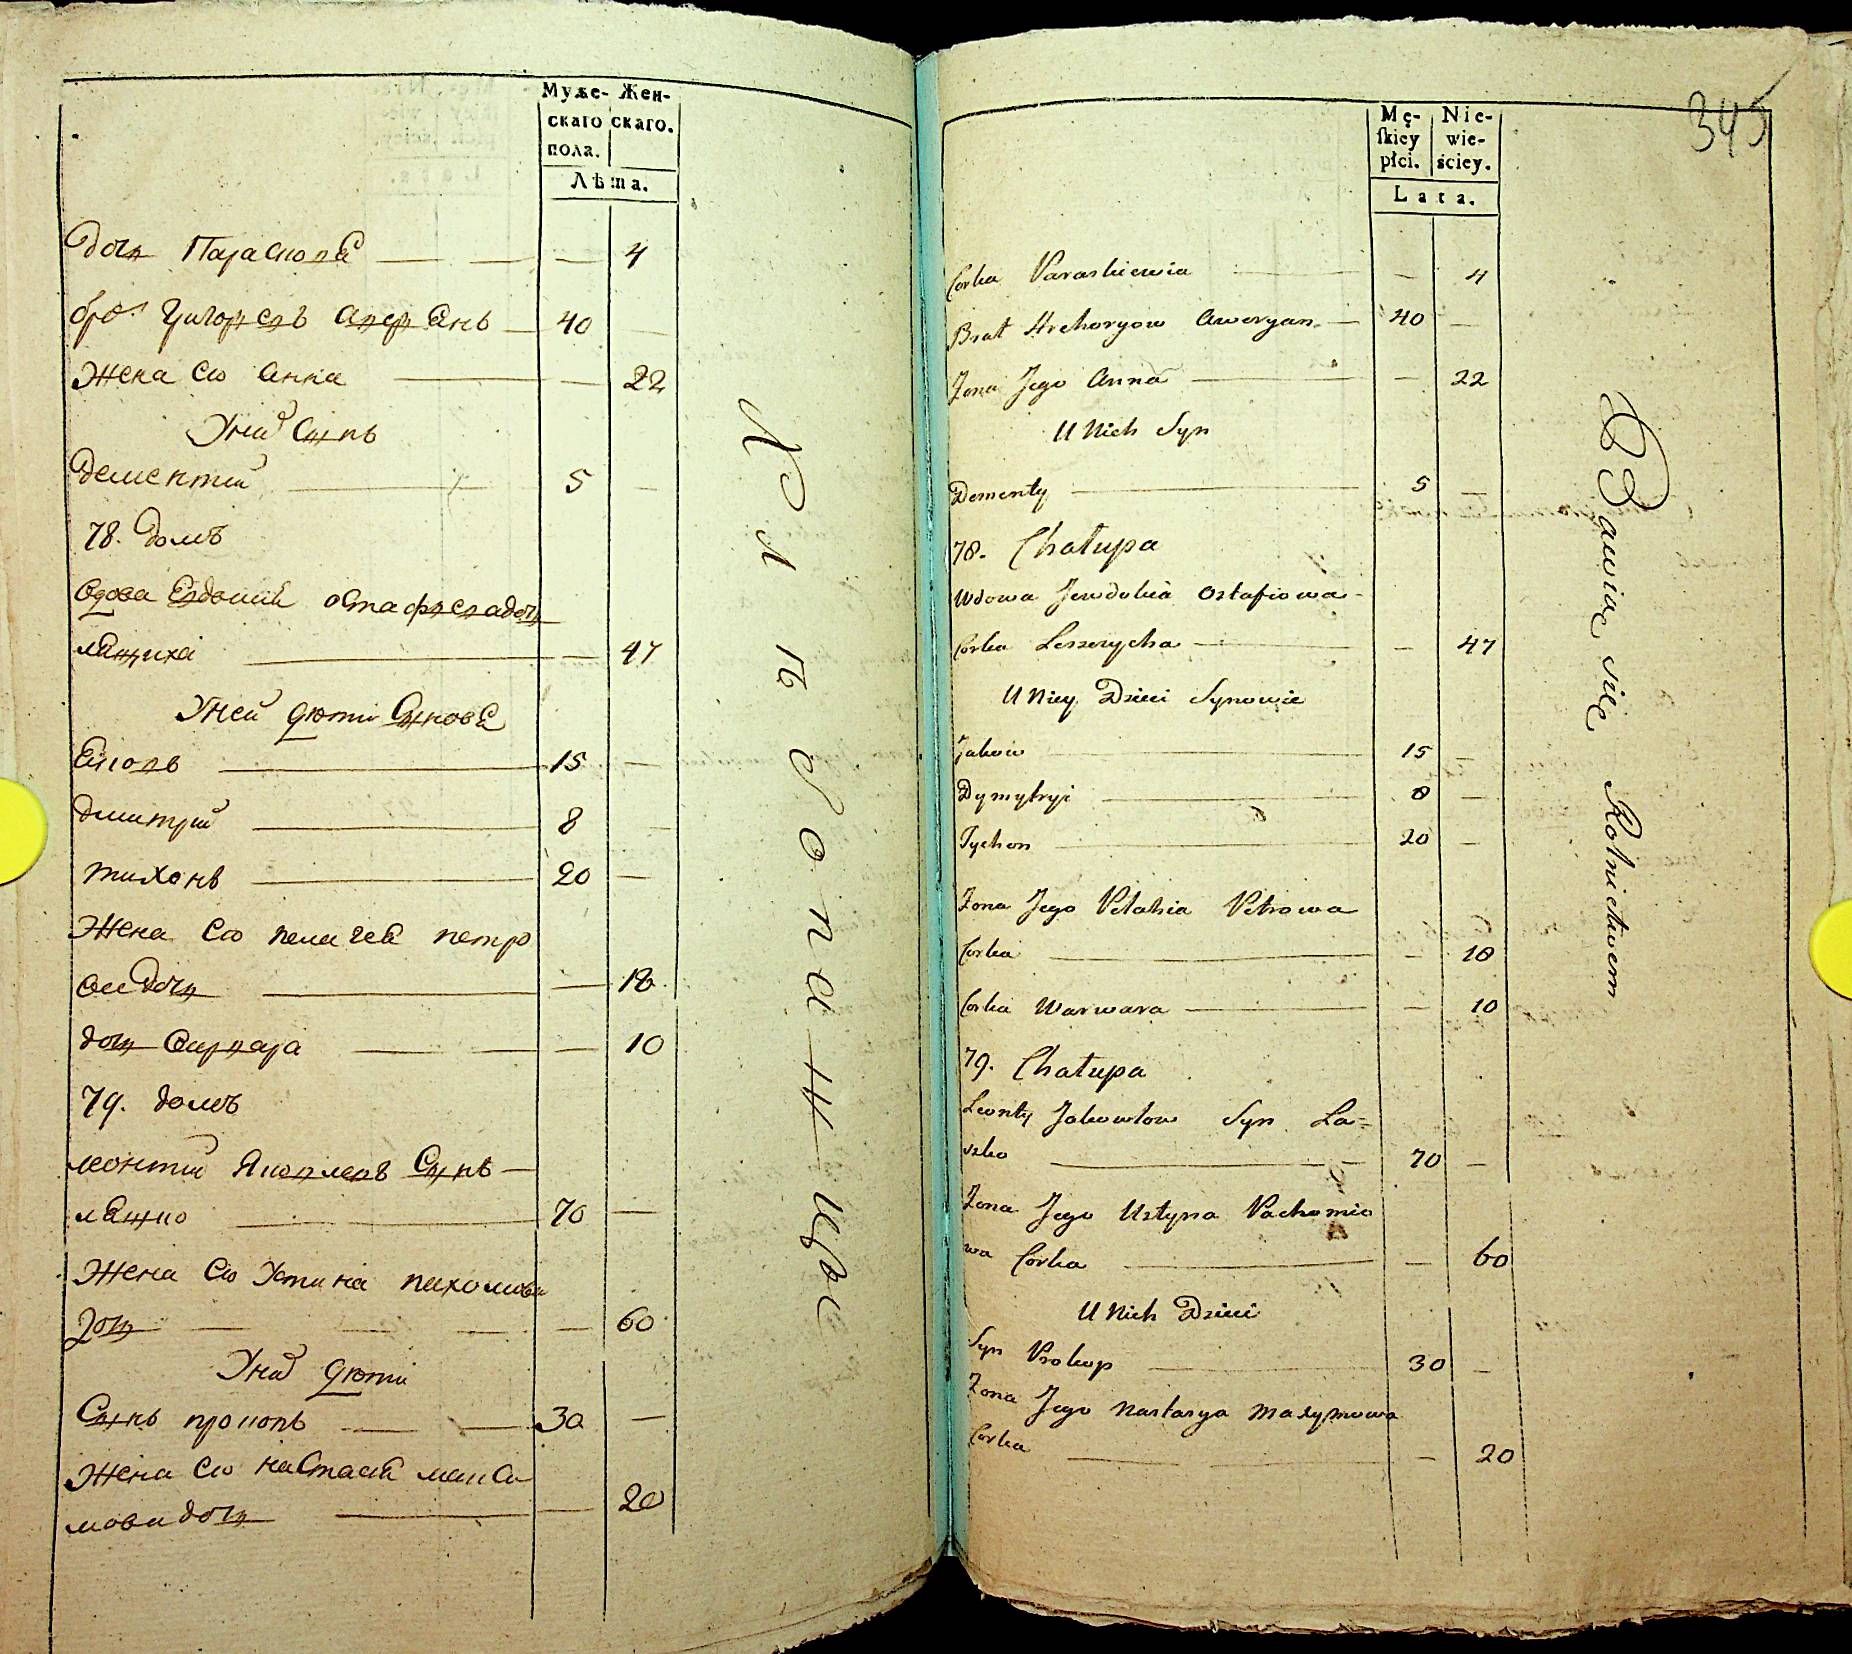 Муже- Жен-
скаго скаго.
пола.
Лѣта.
дочь Параскова — — — 4
братъ Григорьевъ Аверьянъ — 40 —
Жена Ево Анна — — 22
У них Сынъ
Дементий — 5 —
78. домъ
вдова Евдокия Остафьева дочь
Лящиха — — 47
У ней дѣти Сыновья
Яковъ — 15 —
Дмитрий — 8 —
Тихонъ — 20 —
Жена Ево Пелагея Петро
ва дочь — — 18
дочь Варвара — — — 10
79. домъ
Леонтий Яковлевъ Сынъ —
Ляшко — 70 —
Жена Ево Устина Пахомова
дочь — — — 60
У них дѣти
Сынъ Прокопъ — — 30 —
Жена Ево Настасия Макси
мова дочь — — 20
Хлѣбопашцы
345
Mę- Nie-
ſkiey wie-
płci. ściey.
Lata.
Corka Paraskiewia — — 4
Brat Hrehoryow Aweryan — 40 —
Zona Jego Anna — — 22
U Nich Syn
Dementy — 5 —
78. Chałupa
Wdowa Jewdokia Ostafiowa -
Corka Leszczycha — — 47
U Niey Dzieci Synowie
Jakow — 15 —
Dymytryi — 8 —
Tychon — 20 —
Zona Jego Pelahia Petrowa
Corka — — 18
Corka Warwara — — 10
79. Chałupa
Leonty Jakowlow Syn La=
szko — 70 —
Zona Jego Ustyna Pachomio
wa Corka — — 60
U Nich Dzieci
Syn Prokop — 30 —
Zona Jego Nastasya Maxymowa
Corka — — — 20
Bawią się Rolnictwem